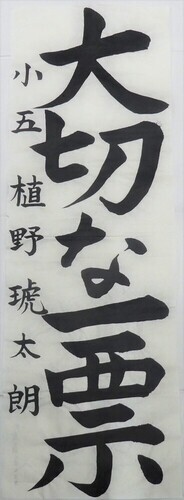 大切な一票
小五 植野琥太朗